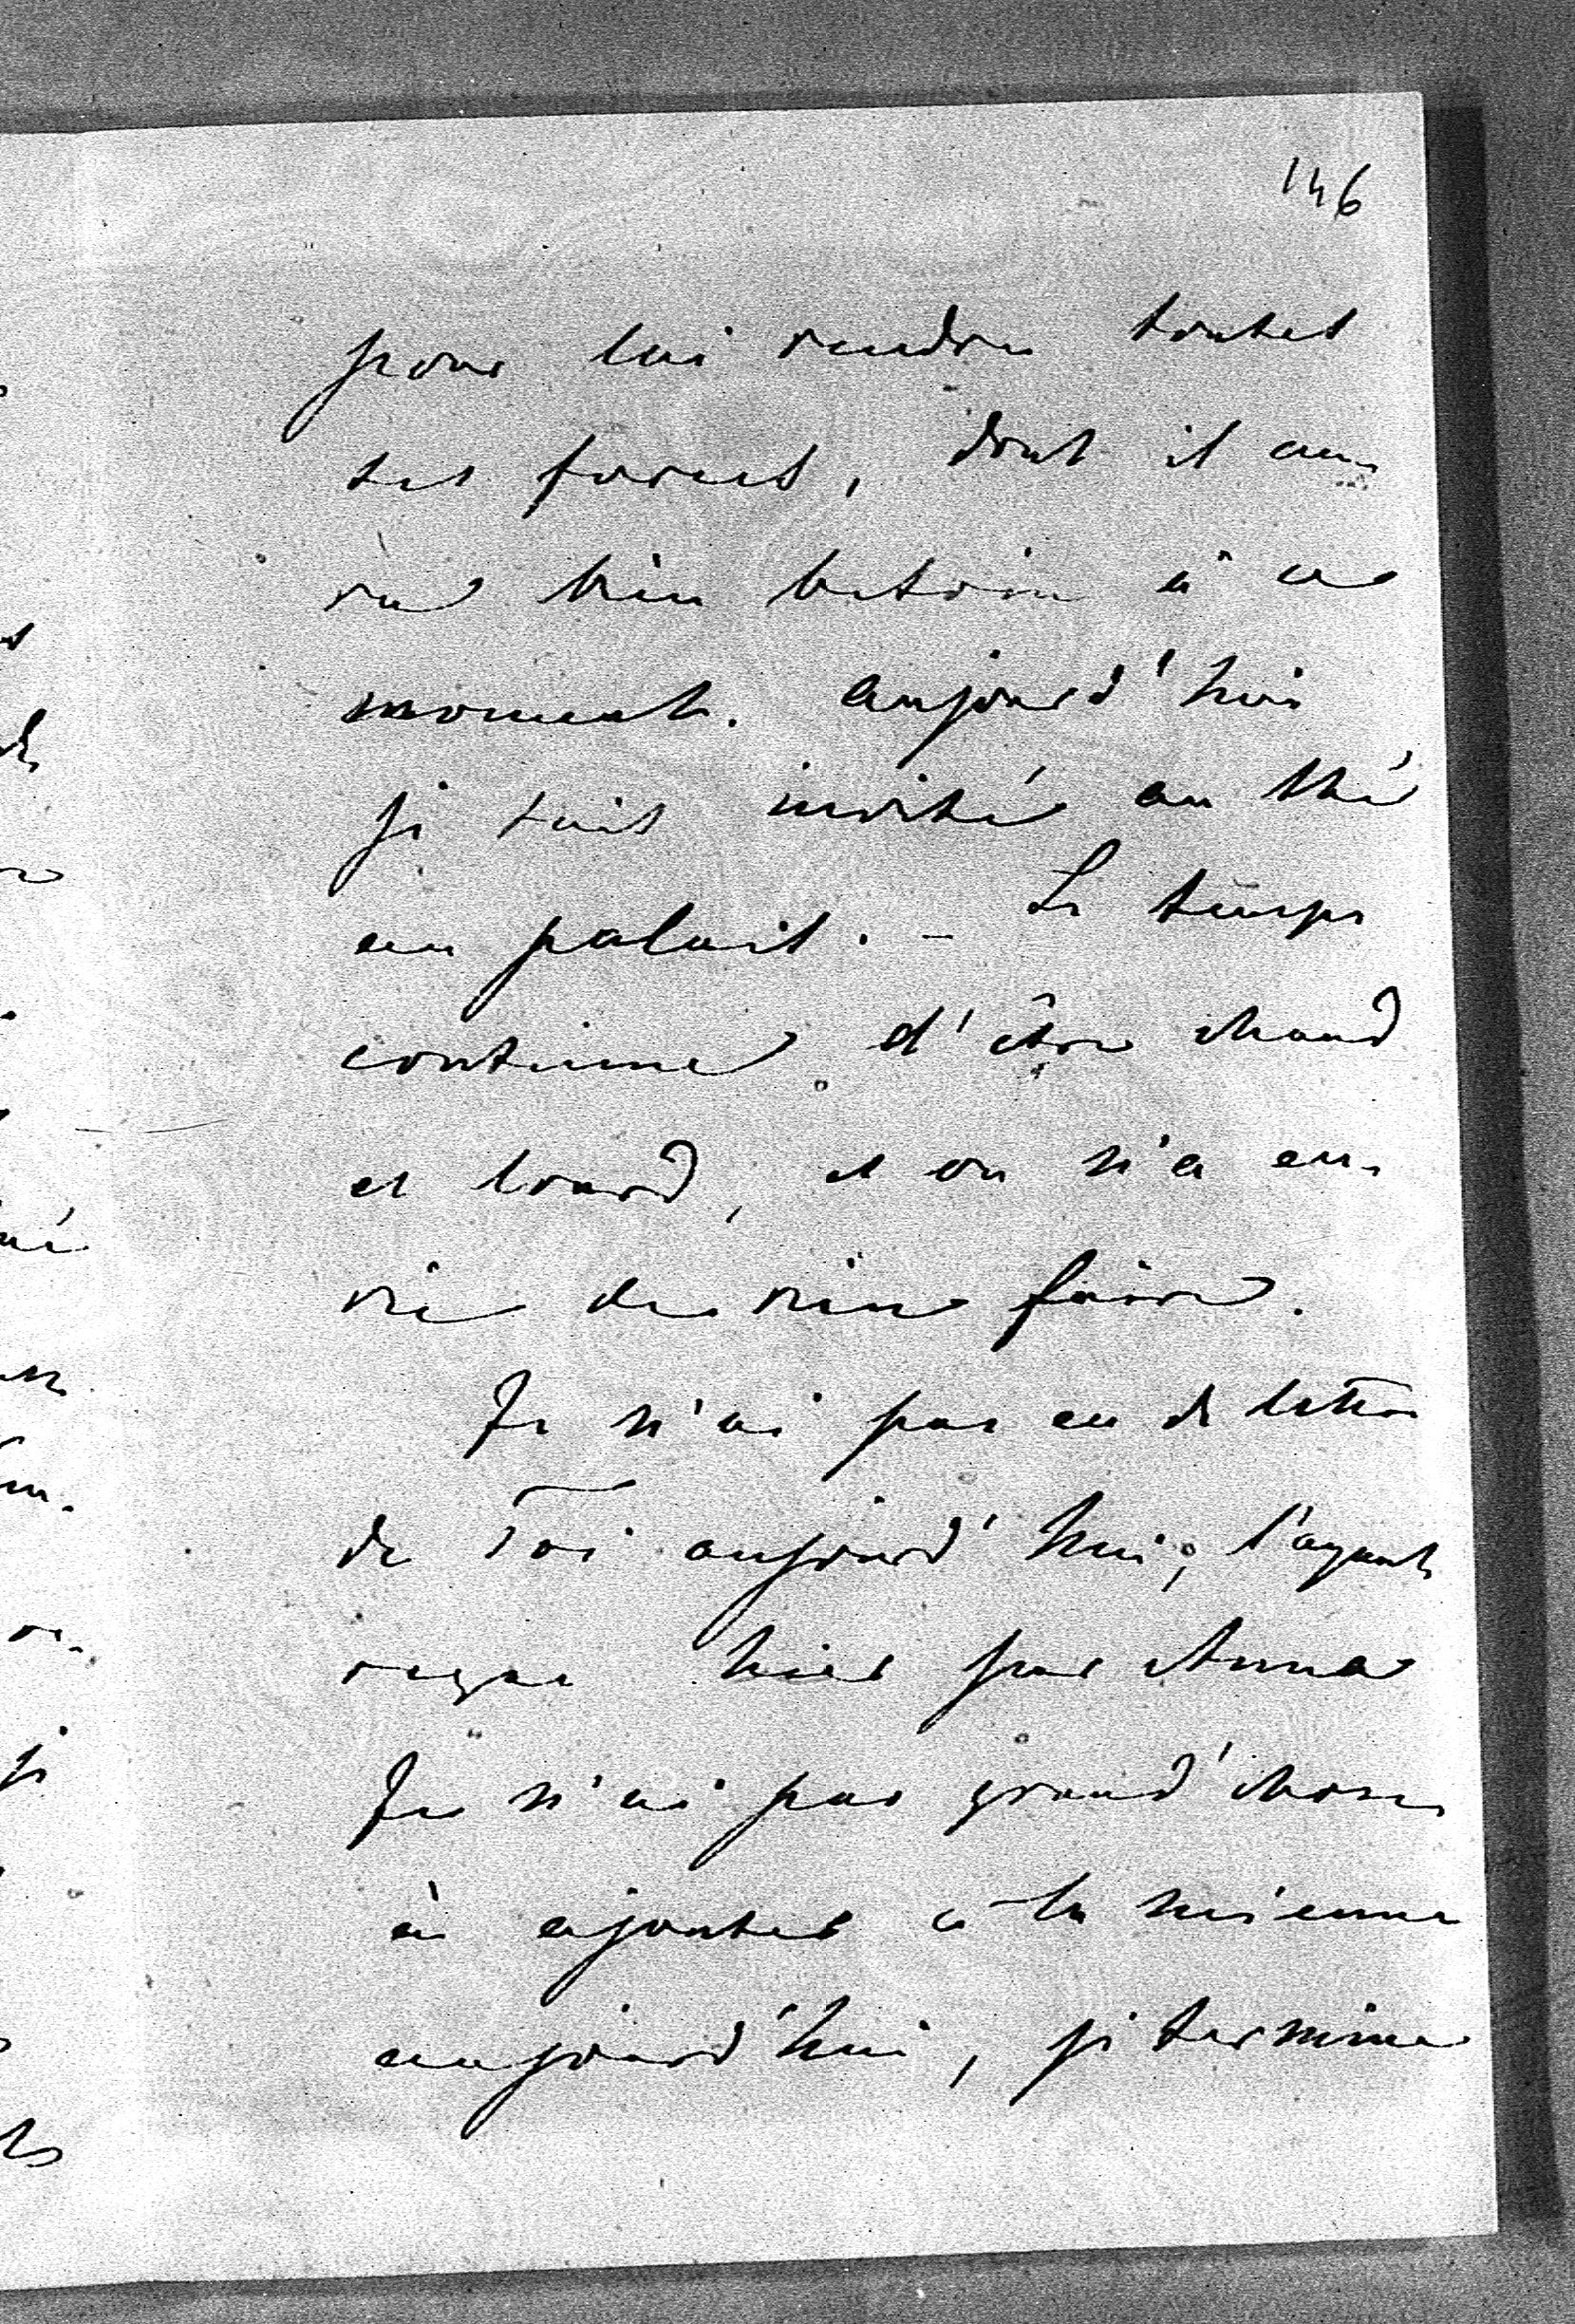 146
pour lui rendre toutes
ses forces, dont il au-
ra bien besoin à ce
moment. Aujourd'hui
je suis invité au thé
au palais. – Le temps
continue d'être chaud
et lourd, et on n'a en-
vie de rien faire.
Je n'ai pas eu de lettre
de Toi aujourd'hui, l'ayant
reçue hier par Anna
Je n'ai pas grand'chose
à ajouter à la mienne
aujourd'hui, je termine